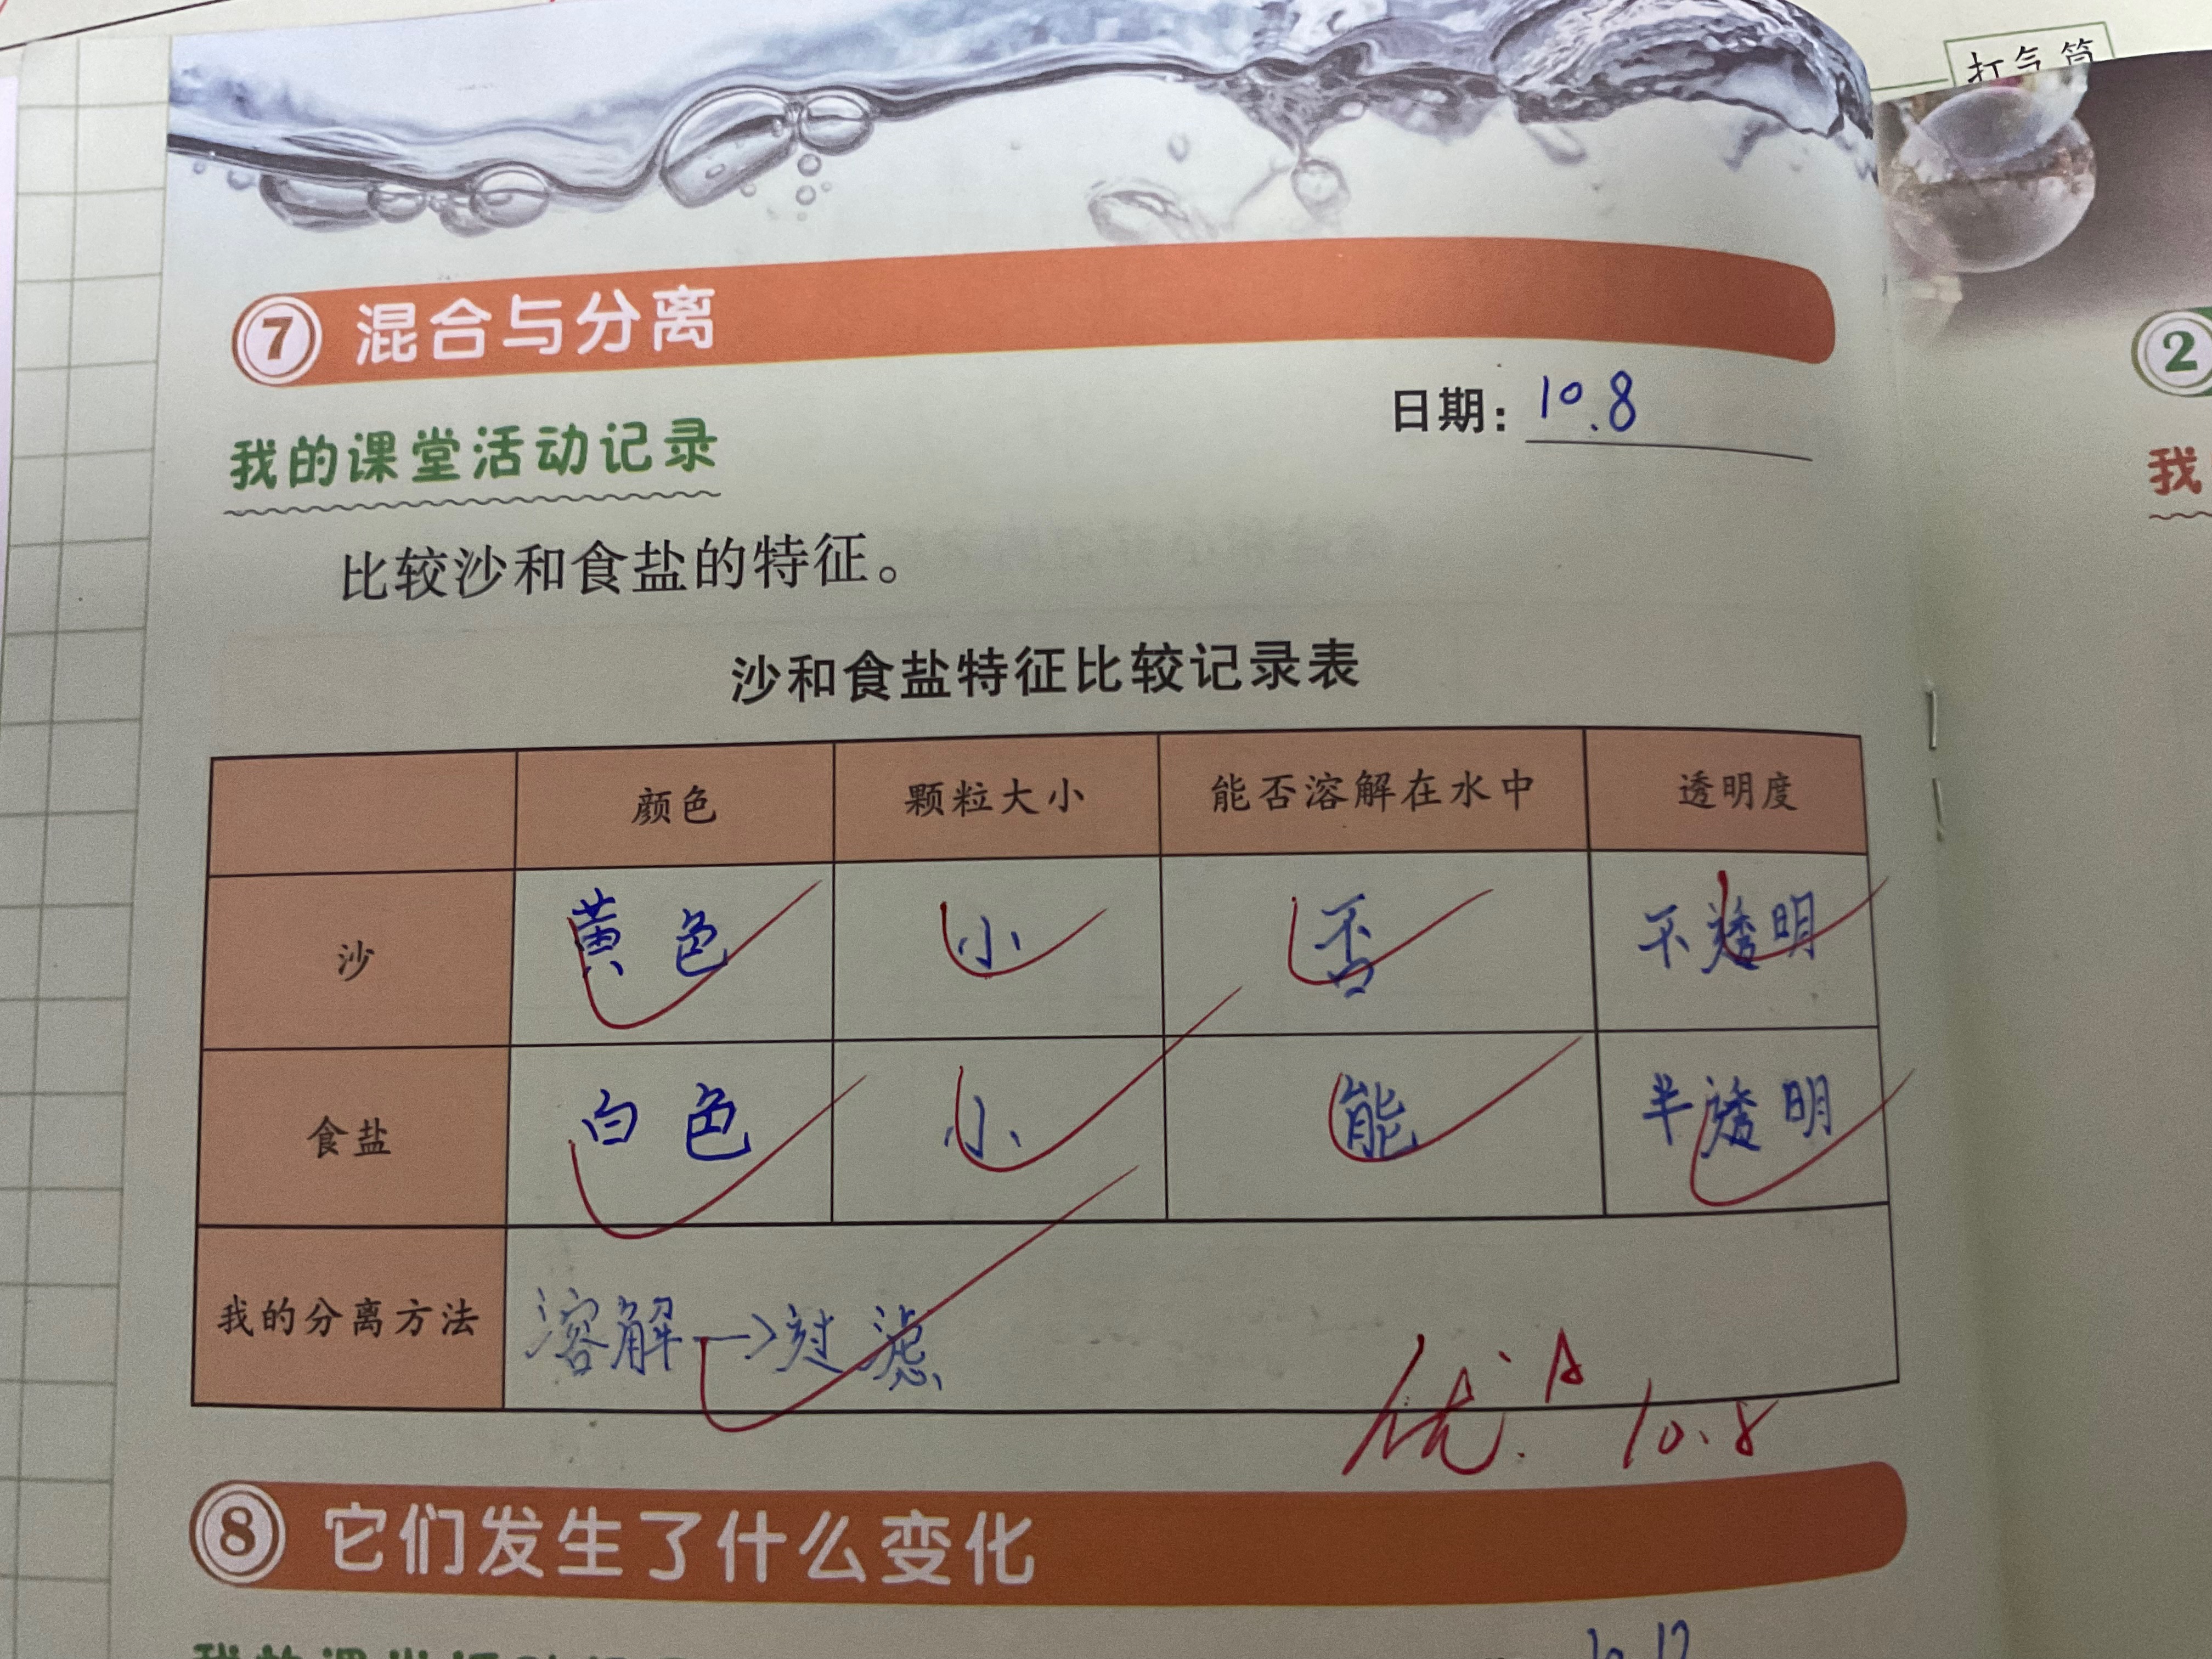 打气筒
⑦ 混合与分离
日期：10.8
我的课堂活动记录
比较沙和食盐的特征。
沙和食盐特征比较记录表
颜色 颗粒大小 能否溶解在水中 透明度
沙 黄色 小 否 不透明
食盐 白色 小 能 半透明
我的分离方法 溶解→过滤
优 A 10.8
⑧ 它们发生了什么变化
②
我